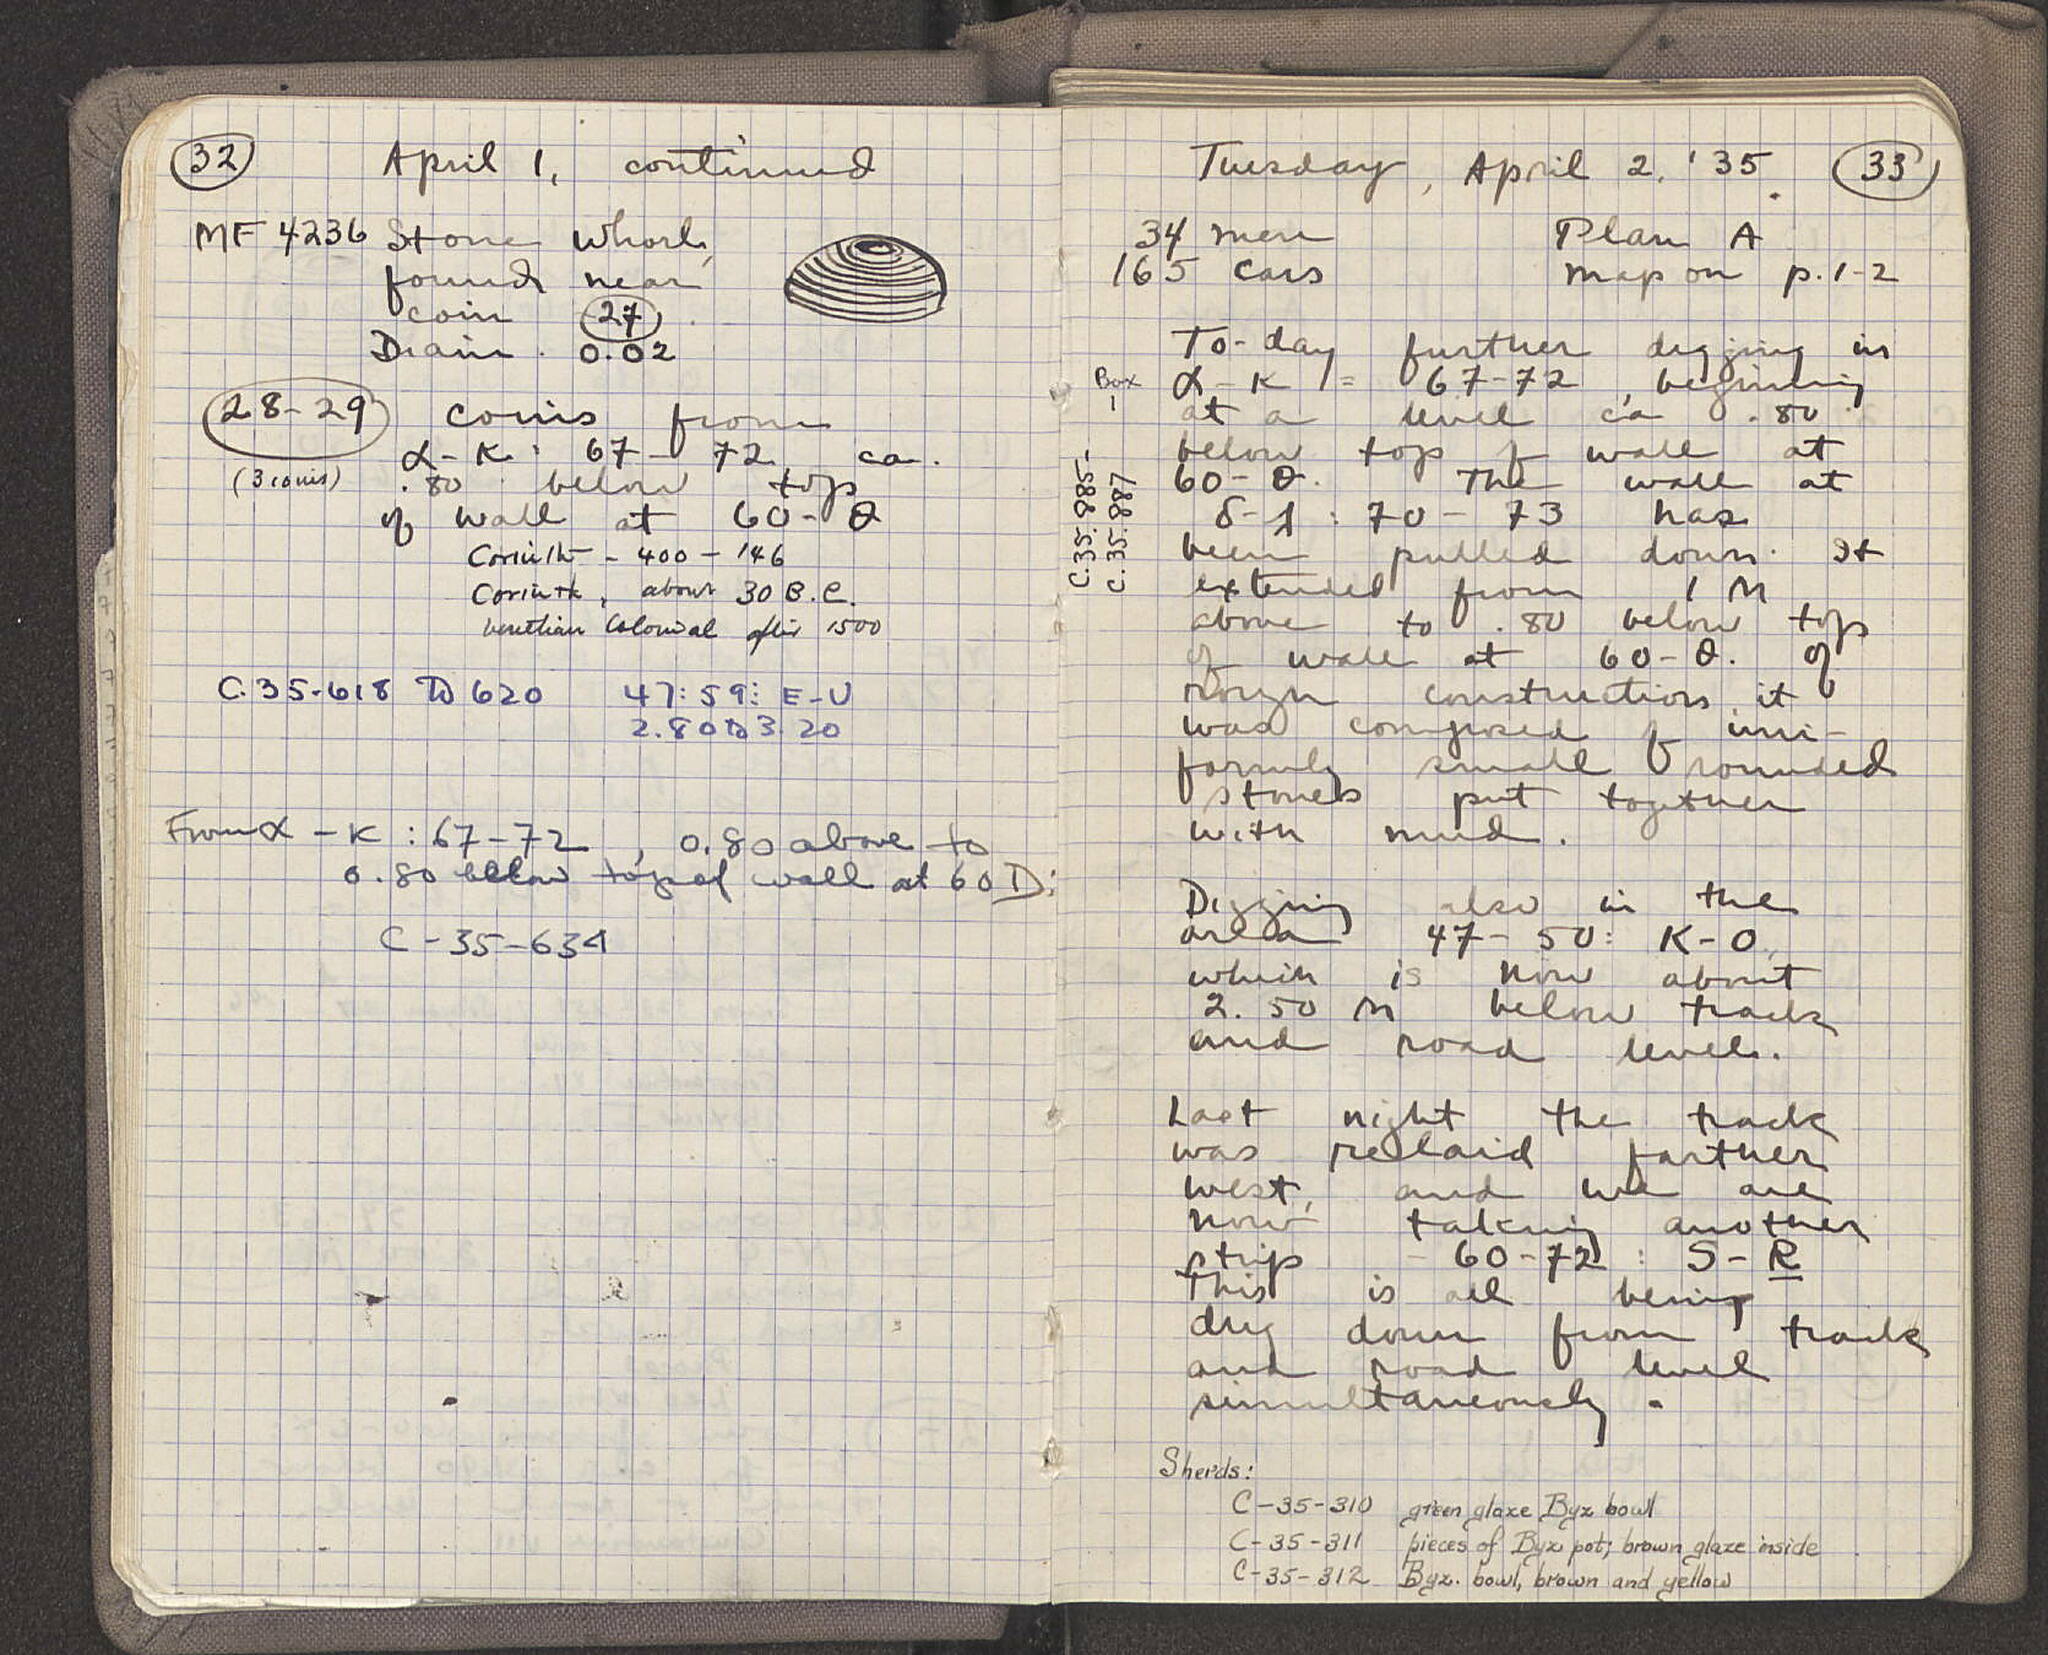 32
April 1, continued
MF 4236 Stone whorl,
found near
coin 27.
Diam. 0.02
28-29 coins from
(3 coins)
α-K: 67-72 ca.
.80 below top
of wall at 60-θ
Corinth - 400-146
Corinth, about 30 B.C.
Venetian Colonial after 1500
C.35-618 to 620 47:59: E-U
2.80 to 3.20
From α-K: 67-72, 0.80 above to
0.80 below top of wall at 60 D:
C-35-634
Tuesday, April 2, '35. 33
34 men Plan A
165 cars map on p. 1-2
Box
1
C.35.885-
C.35.887
To-day further digging in
α-K = 67-72 beginning
at a level ca .80
below top of wall at
60-θ. The wall at
70-73 has
been pulled down. It
extended from 1 M
above to .80 below top
of wall at 60-θ. Of
rough construction it
was composed of uni-
formly small rounded
stones put together
with mud.
Digging also in the
area 47-50: K-O,
which is now about
2.50 M below track
and road level.
Last night the track
was relaid farther
west, and we are
now taking another
strip - 60-72: S-R
This is all being
dug down from track
and road level
simultaneously.
Sherds:
C-35-310 green glaze Byz bowl
C-35-311 pieces of Byz pot; brown glaze inside
C-35-312 Byz. bowl, brown and yellow